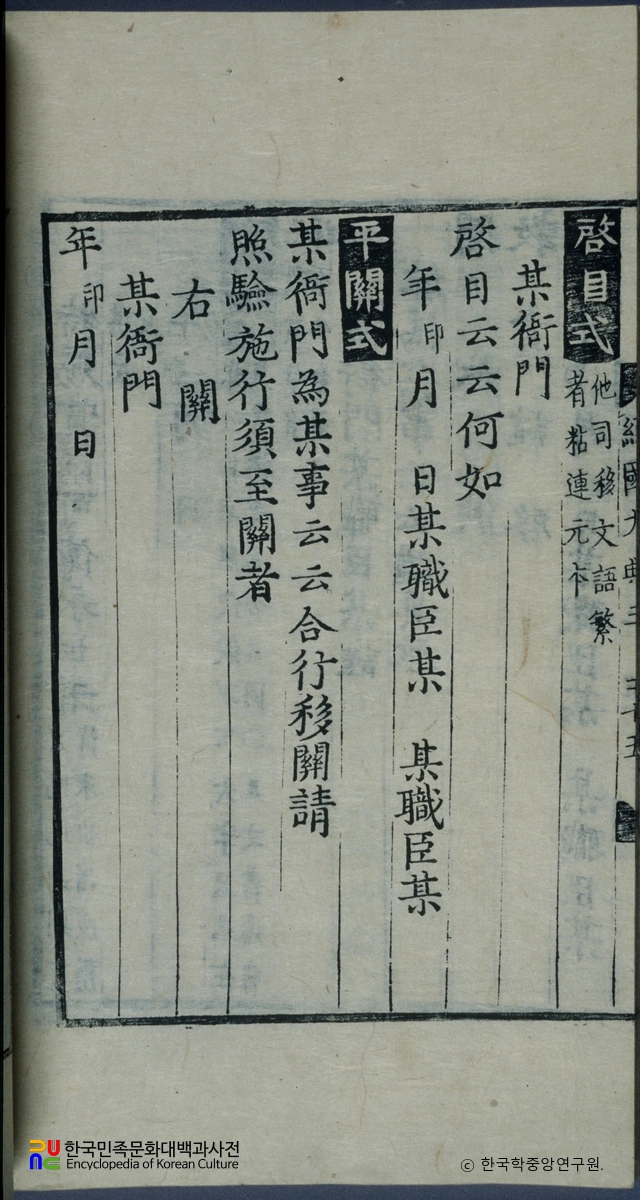 經國大典
啓目式 他司移文語繁
者粘連元本
某衙門
啓目云云何如
年印月 日某職臣某 某職臣某
平關式
某衙門為某事云云合行移關請
照驗施行須至關者
右 關
某衙門
年印月 日
한국민족문화대백과사전
Encyclopedia of Korean Culture
ⓒ 한국학중앙연구원.